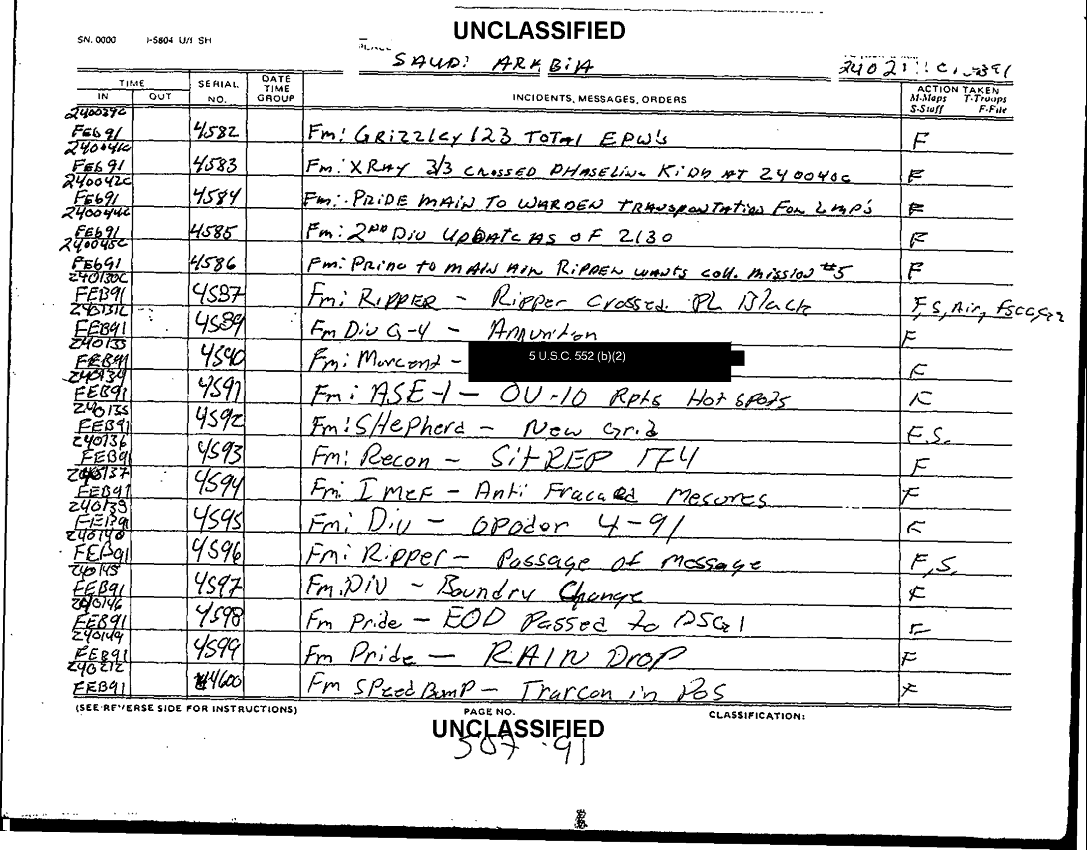 UNCLASSIFIED
SN. 0000 U/I SH
SAUDI ARABIA
TIME SERIAL DATE ACTION TAKEN
IN OUT NO. TIME GROUP INCIDENTS, MESSAGES, ORDERS M-Maps T-Troops S-Staff F-File
240039C FEB 91 4582 Fm: GRIZZLEY 123 TOTAL EPW's F
240041C FEB 91 4583 Fm: XRAY 3/3 CROSSED PHASELINE KIDD AT 240040C F
240042C FEB 91 4584 Fm: PRIDE MAIN TO WARDEN TRANSPORTATION FOR EMP'S F
240044C FEB 91 4585 Fm: 2ND DIV UPDATE AS OF 2130 F
240045C FEB 91 4586 Fm: TO MAIN AIR RIPPER WANTS COLL. MISSION #5 F
240130C FEB91 4587 Fm: RIPPER - Ripper Crossed PL Black F, S, Air, FSCC,
240131C FEB91 4589 Fm Div G-4 - F
240133 FEB91 4590 Fm: - 5 U.S.C. 552 (b)(2) F
240134 FEB91 4591 Fm: ASE-1 - OU-10 Rpts Hot spots F
240135 FEB91 4592 Fm: SHepherd - New Grid F.S.
240136 FEB91 4593 Fm: Recon - SitREP F
240137 FEB91 4594 Fm: I MEF - Anti Mesures F
240139 FEB91 4595 Fm: Div - 4-91 F
240140 FEB91 4596 Fm: Ripper - Passage of message F, S,
240145 FEB91 4597 Fm: DIV - Boundry Change F
240146 FEB91 4598 Fm Pride - EOD Passed to F
240149 FEB91 4599 Fm Pride - RAIN DROP F
240212 FEB91 4600 Fm SPeed BumP - in Pos F
(SEE REVERSE SIDE FOR INSTRUCTIONS) PAGE NO. CLASSIFICATION:
UNCLASSIFIED